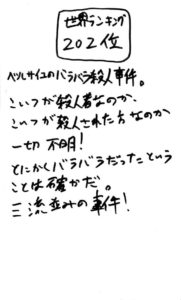 世界ランキング
202位
ベルサイユのバラバラ殺人事件。
こいつが殺人者なのか、
こいつが殺人された方なのか
一切不明!
とにかくバラバラだったという
ことは確かだ。
三流並みの事件!